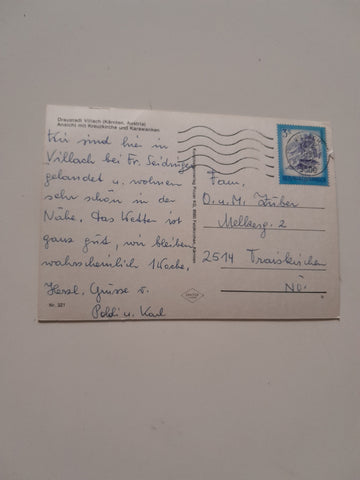 Draustadt Villach (Kärnten, Austria)
Ansicht mit Kreuzkirche und Karawanken
Wir sind hier in
Villach bei Fr. Seidinger
gelandet u. wohnen
sehr schön in der
Nähe. Das Wetter ist
ganz gut, wir bleiben
wahrscheinlich 1 Woche.
Herzl. Grüsse v.
Poldi u. Karl
Nr. 321
Fam.
O. u. M. Zuber
Mellberg. 2
2514 Traiskirchen
NÖ.